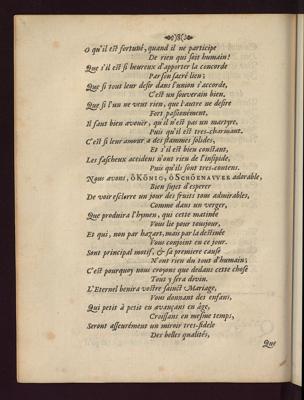 O qu'il est fortuné, quand il ne participe
De rien qui soit humain!
Que s'il est si heureux d'apporter la concorde
Par son sacré lien;
Que si tout leur desir dans l'union s'accorde,
C'est un souverain bien,
Que si l'un ne veut rien, que l'autre ne desire
Fort passionément,
Il faut bien avouër, qu'il n'est pas un martyre,
Puis qu'il est tres-charmant.
C'est si leur amour a des flammes solides,
Et s'il est bien constant,
Les fascheux accidens n'ont rien de l'insipide,
Puis qu'ils sont tres-contens.
Nous avons, ô KÖNIG, ô SCHÖENAVVER adorable,
Bien sujet d'esperer
De voir esclorre un jour des fruits tous admirables,
Comme dans un verger,
Que produira l'hymen, qui cette matinée
Vous lie pour toujours,
Et qui, non par hazart, mais par la destinée
Vous conjoint en ce jour.
Son principal motif, & sa premiere cause
N'ont rien du tout d'humain;
C'est pourquoy nous croyons que dedans cette chose
Tout y sera divin.
L'Eternel benira vostre sainct Mariage,
Vous donnant des enfans,
Qui petit à petit en avançant en âge,
Croissant en mesme temps,
Seront asseurément un miroir tres-fidele
Des belles qualités,
Que